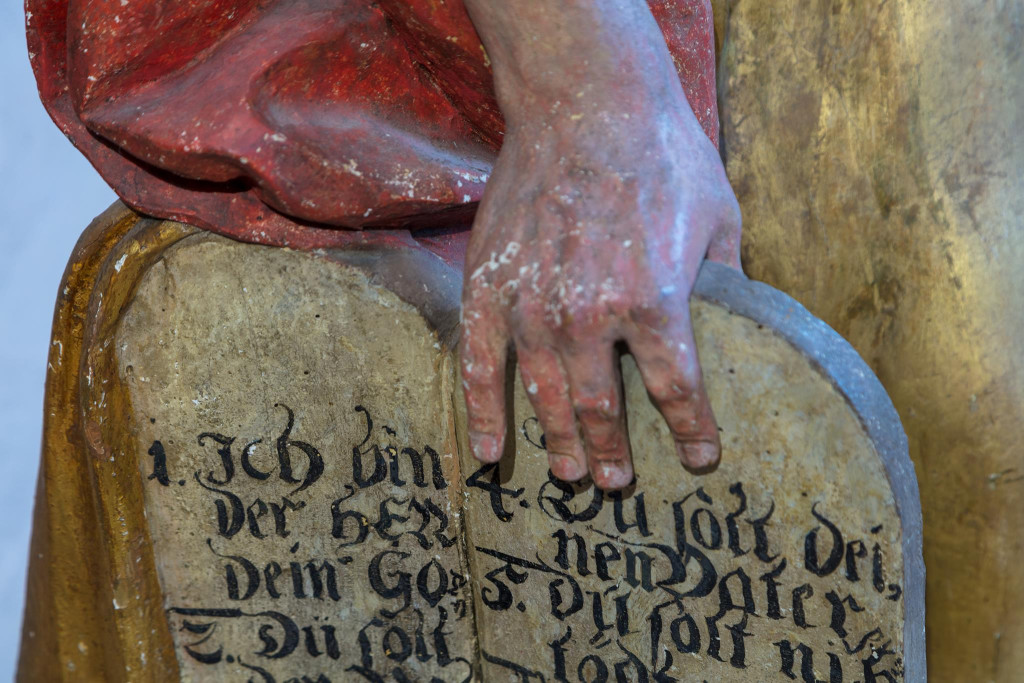 1. Ich bin
der HERR
dein Go⸗
2. Du solt
den
4. Du solt dei⸗
nen Vater
5. Du solt nicht
töd⸗